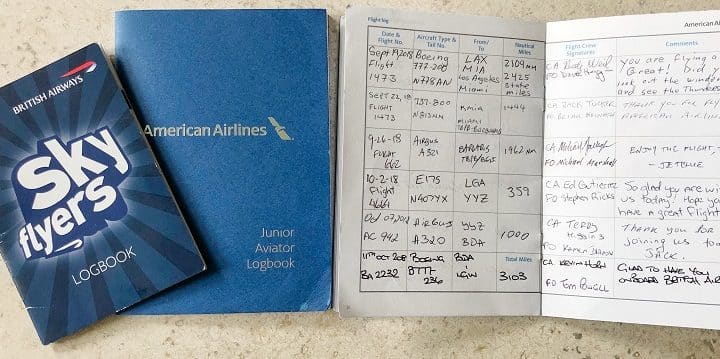 BRITISH AIRWAYS
Sky
flyers
LOGBOOK
American Airlines
Junior
Aviator
Logbook
Flight log
Date &
Flight No.
Aircraft Type &
Tail No.
From/
To
Nautical
Miles
Sept 19, 2018
Flight
1473
Boeing
777-200
N778AN
LAX
MIA
Los Angeles
Miami
2109 NM
2425
State
miles
Sept 22, 18
FLIGHT
1473
737-800
KMIA
MIAMI
9-26-18
FLIGHT
662
AIRBUS
A321
1962 NM
10-2-18
Flight
4664
E175
N407YX
LGA
YYZ
359
Oct 07, 2018
AC 942
AirBus
A320
YYZ
BDA
1000
11TH OCT 2018
BA 2232
BOEING
236
BDA
LGW
Total Miles
3103
American Air
Flight Crew
Signatures
Comments
CA
FO
You are flying a
Great! Did y
look out the window
and see the Thunders
CA
THANK YOU FOR FLY
AMERICAN AIRLIN
CA
FO Michael Marshall
ENJOY THE FLIGHT,
CA Ed Gutierrez
FO Stephen Ricks
So glad you are wi
us today! Hope you
have a great Flight
CA Terry
Higgins
FO
Thank you for
joining us to
Jack.
CA Kevin
FO Tom
GLAD TO HAVE YOU
ONBOARD BRITISH AIR